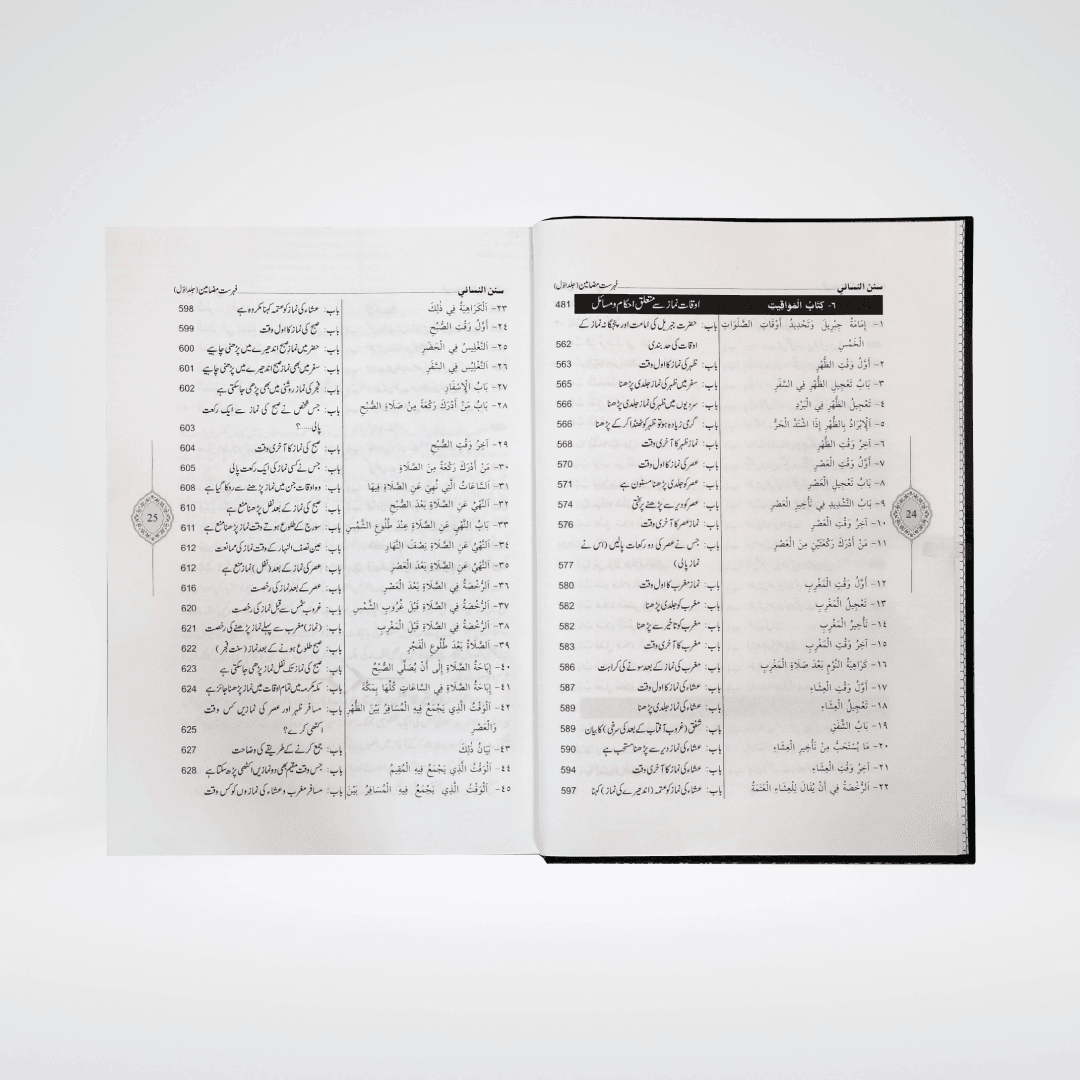 سنن النسائي فہرست مضامین (جلد اول)
٦- كِتَابُ الْمَوَاقِيتِ اوقات نماز سے متعلق احکام و مسائل 481
١- إِمَامَةُ جِبْرِيلَ وَتَحْدِيدُ أَوْقَاتِ الصَّلَوَاتِ باب: حضرت جبریل کی امامت اور پنجگانہ نماز کے
الْخَمْسِ اوقات کی حد بندی 562
٢- أَوَّلُ وَقْتِ الظُّهْرِ باب: ظہر کی نماز کا اول وقت 563
٣- بَابُ تَعْجِيلِ الظُّهْرِ فِي السَّفَرِ باب: سفر میں ظہر کی نماز جلدی پڑھنا 565
٤- تَعْجِيلُ الظُّهْرِ فِي الْبَرْدِ باب: سردیوں میں ظہر کی نماز جلدی پڑھنا 566
٥- اَلْإِبْرَادُ بِالظُّهْرِ إِذَا اشْتَدَّ الْحَرُّ باب: گرمی زیادہ ہو تو ظہر کو ٹھنڈا کر کے پڑھنا 566
٦- آخِرُ وَقْتِ الظُّهْرِ باب: نماز ظہر کا آخری وقت 568
٧- أَوَّلُ وَقْتِ الْعَصْرِ باب: عصر کی نماز کا اول وقت 570
٨- بَابُ تَعْجِيلِ الْعَصْرِ باب: عصر کو جلدی پڑھنا مسنون ہے 571
٩- بَابُ التَّشْدِيدِ فِي تَأْخِيرِ الْعَصْرِ باب: عصر کو دیر سے پڑھنے پر سختی 574
١٠- آخِرُ وَقْتِ الْعَصْرِ باب: نماز عصر کا آخری وقت 576
١١- مَنْ أَدْرَكَ رَكْعَتَيْنِ مِنَ الْعَصْرِ باب: جس نے عصر کی دو رکعات پالیں (اس نے
نماز پالی) 577
١٢- أَوَّلُ وَقْتِ الْمَغْرِبِ باب: نماز مغرب کا اول وقت 580
١٣- تَعْجِيلُ الْمَغْرِبِ باب: مغرب کو جلدی پڑھنا 582
١٤- تَأْخِيرُ الْمَغْرِبِ باب: مغرب کو تاخیر سے پڑھنا 582
١٥- آخِرُ وَقْتِ الْمَغْرِبِ باب: مغرب کا آخری وقت 583
١٦- كَرَاهِيَةُ النَّوْمِ بَعْدَ صَلَاةِ الْمَغْرِبِ باب: مغرب کی نماز کے بعد سونے کی کراہت 586
١٧- أَوَّلُ وَقْتِ الْعِشَاءِ باب: عشاء کی نماز کا اول وقت 587
١٨- تَعْجِيلُ الْعِشَاءِ باب: عشاء کی نماز جلدی پڑھنا 589
١٩- بَابُ الشَّفَقِ باب: شفق (غروب آفتاب کے بعد کی سرخی) کا بیان 589
٢٠- مَا يُسْتَحَبُّ مِنْ تَأْخِيرِ الْعِشَاءِ باب: عشاء کی نماز دیر سے پڑھنا مستحب ہے 590
٢١- آخِرُ وَقْتِ الْعِشَاءِ باب: عشاء کی نماز کا آخری وقت 594
٢٢- اَلرُّخْصَةُ فِي أَنْ يُقَالَ لِلْعِشَاءِ الْعَتَمَةُ باب: عشاء کی نماز کو عتمہ (اندھیرے کی نماز) کہنا 597
24
سنن النسائي فہرست مضامین (جلد اول)
٢٣- اَلْكَرَاهِيَةُ فِي ذٰلِكَ باب: عشاء کی نماز کو عتمہ کہنا مکروہ ہے 598
٢٤- أَوَّلُ وَقْتِ الصُّبْحِ باب: صبح کی نماز کا اول وقت 599
٢٥- اَلتَّغْلِيسُ فِي الْحَضَرِ باب: حضر میں نماز صبح اندھیرے میں پڑھنی چاہیے 600
٢٦- اَلتَّغْلِيسُ فِي السَّفَرِ باب: سفر میں بھی نماز صبح اندھیرے میں پڑھنی چاہیے 601
٢٧- بَابُ الْإِسْفَارِ باب: فجر کی نماز روشنی میں بھی پڑھی جاسکتی ہے 602
٢٨- بَابُ مَنْ أَدْرَكَ رَكْعَةً مِنْ صَلَاةِ الصُّبْحِ باب: جس شخص نے صبح کی نماز سے ایک رکعت
پالی.....؟ 603
٢٩- آخِرُ وَقْتِ الصُّبْحِ باب: صبح کی نماز کا آخری وقت 604
٣٠- مَنْ أَدْرَكَ رَكْعَةً مِنَ الصَّلَاةِ باب: جس نے کسی نماز کی ایک رکعت پالی 605
٣١- اَلسَّاعَاتُ الَّتِي نُهِيَ عَنِ الصَّلَاةِ فِيهَا باب: وہ اوقات جن میں نماز پڑھنے سے روکا گیا ہے 608
٣٢- اَلنَّهْيُ عَنِ الصَّلَاةِ بَعْدَ الصُّبْحِ باب: صبح کی نماز کے بعد نفل پڑھنا منع ہے 610
٣٣- بَابُ النَّهْيِ عَنِ الصَّلَاةِ عِنْدَ طُلُوعِ الشَّمْسِ باب: سورج کے طلوع ہوتے وقت نماز پڑھنا منع ہے 611
٣٤- اَلنَّهْيُ عَنِ الصَّلَاةِ نِصْفَ النَّهَارِ باب: عین نصف النہار کے وقت نماز کی ممانعت 612
٣٥- اَلنَّهْيُ عَنِ الصَّلَاةِ بَعْدَ الْعَصْرِ باب: عصر کی نماز کے بعد (نفل) نماز منع ہے 612
٣٦- اَلرُّخْصَةُ فِي الصَّلَاةِ بَعْدَ الْعَصْرِ باب: عصر کے بعد نماز کی رخصت 616
٣٧- اَلرُّخْصَةُ فِي الصَّلَاةِ قَبْلَ غُرُوبِ الشَّمْسِ باب: غروب شمس سے قبل نماز کی رخصت 620
٣٨- اَلرُّخْصَةُ فِي الصَّلَاةِ قَبْلَ الْمَغْرِبِ باب: (نماز) مغرب سے پہلے نماز پڑھنے کی رخصت 621
٣٩- اَلصَّلَاةُ بَعْدَ طُلُوعِ الْفَجْرِ باب: صبح طلوع ہونے کے بعد نماز (سنت فجر) 622
٤٠- إِبَاحَةُ الصَّلَاةِ إِلَى أَنْ يُصَلِّيَ الصُّبْحَ باب: صبح کی نماز تک نفل نماز پڑھی جاسکتی ہے 623
٤١- إِبَاحَةُ الصَّلَاةِ فِي السَّاعَاتِ كُلِّهَا بِمَكَّةَ باب: مکہ مکرمہ میں تمام اوقات میں نماز پڑھنا جائز ہے 624
٤٢- اَلْوَقْتُ الَّذِي يَجْمَعُ فِيهِ الْمُسَافِرُ بَيْنَ الظُّهْرِ باب: مسافر ظہر اور عصر کی نمازیں کس وقت
وَالْعَصْرِ اکٹھی کرے؟ 625
٤٣- بَيَانُ ذٰلِكَ باب: جمع کرنے کے طریقے کی وضاحت 627
٤٤- اَلْوَقْتُ الَّذِي يَجْمَعُ فِيهِ الْمُقِيمُ باب: جس وقت مقیم بھی دو نمازیں اکٹھی پڑھ سکتا ہے 628
٤٥- اَلْوَقْتُ الَّذِي يَجْمَعُ فِيهِ الْمُسَافِرُ بَيْنَ باب: مسافر مغرب و عشاء کی نمازوں کو کس وقت
25